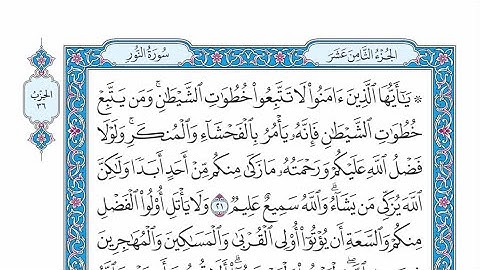 الجُزْءُ الثَّامِنَ عَشَرَ
سُورَةُ النُّورِ
الحِزْبُ
٣٦
۞ يَٰٓأَيُّهَا ٱلَّذِينَ ءَامَنُواْ لَا تَتَّبِعُواْ خُطُوَٰتِ ٱلشَّيْطَٰنِۚ وَمَن يَتَّبِعْ
خُطُوَٰتِ ٱلشَّيْطَٰنِ فَإِنَّهُۥ يَأْمُرُ بِٱلْفَحْشَآءِ وَٱلْمُنكَرِۚ وَلَوْلَا
فَضْلُ ٱللَّهِ عَلَيْكُمْ وَرَحْمَتُهُۥ مَا زَكَىٰ مِنكُم مِّنْ أَحَدٍ أَبَدًا وَلَٰكِنَّ
ٱللَّهَ يُزَكِّي مَن يَشَآءُۗ وَٱللَّهُ سَمِيعٌ عَلِيمٌ ٢١ وَلَا يَأْتَلِ أُوْلُواْ ٱلْفَضْلِ
مِنكُمْ وَٱلسَّعَةِ أَن يُؤْتُوٓاْ أُوْلِي ٱلْقُرْبَىٰ وَٱلْمَسَٰكِينَ وَٱلْمُهَٰجِرِينَ